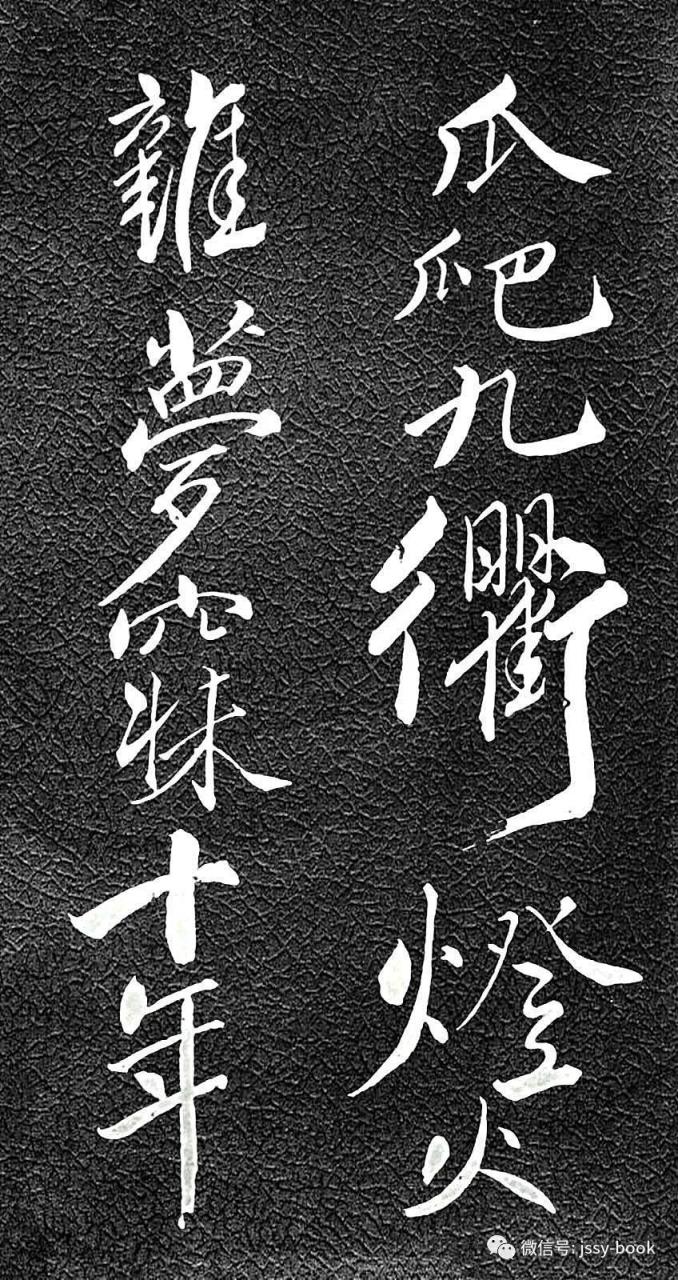 爪爬九衢燈火
雜夢寐十年
微信号: jssy-book